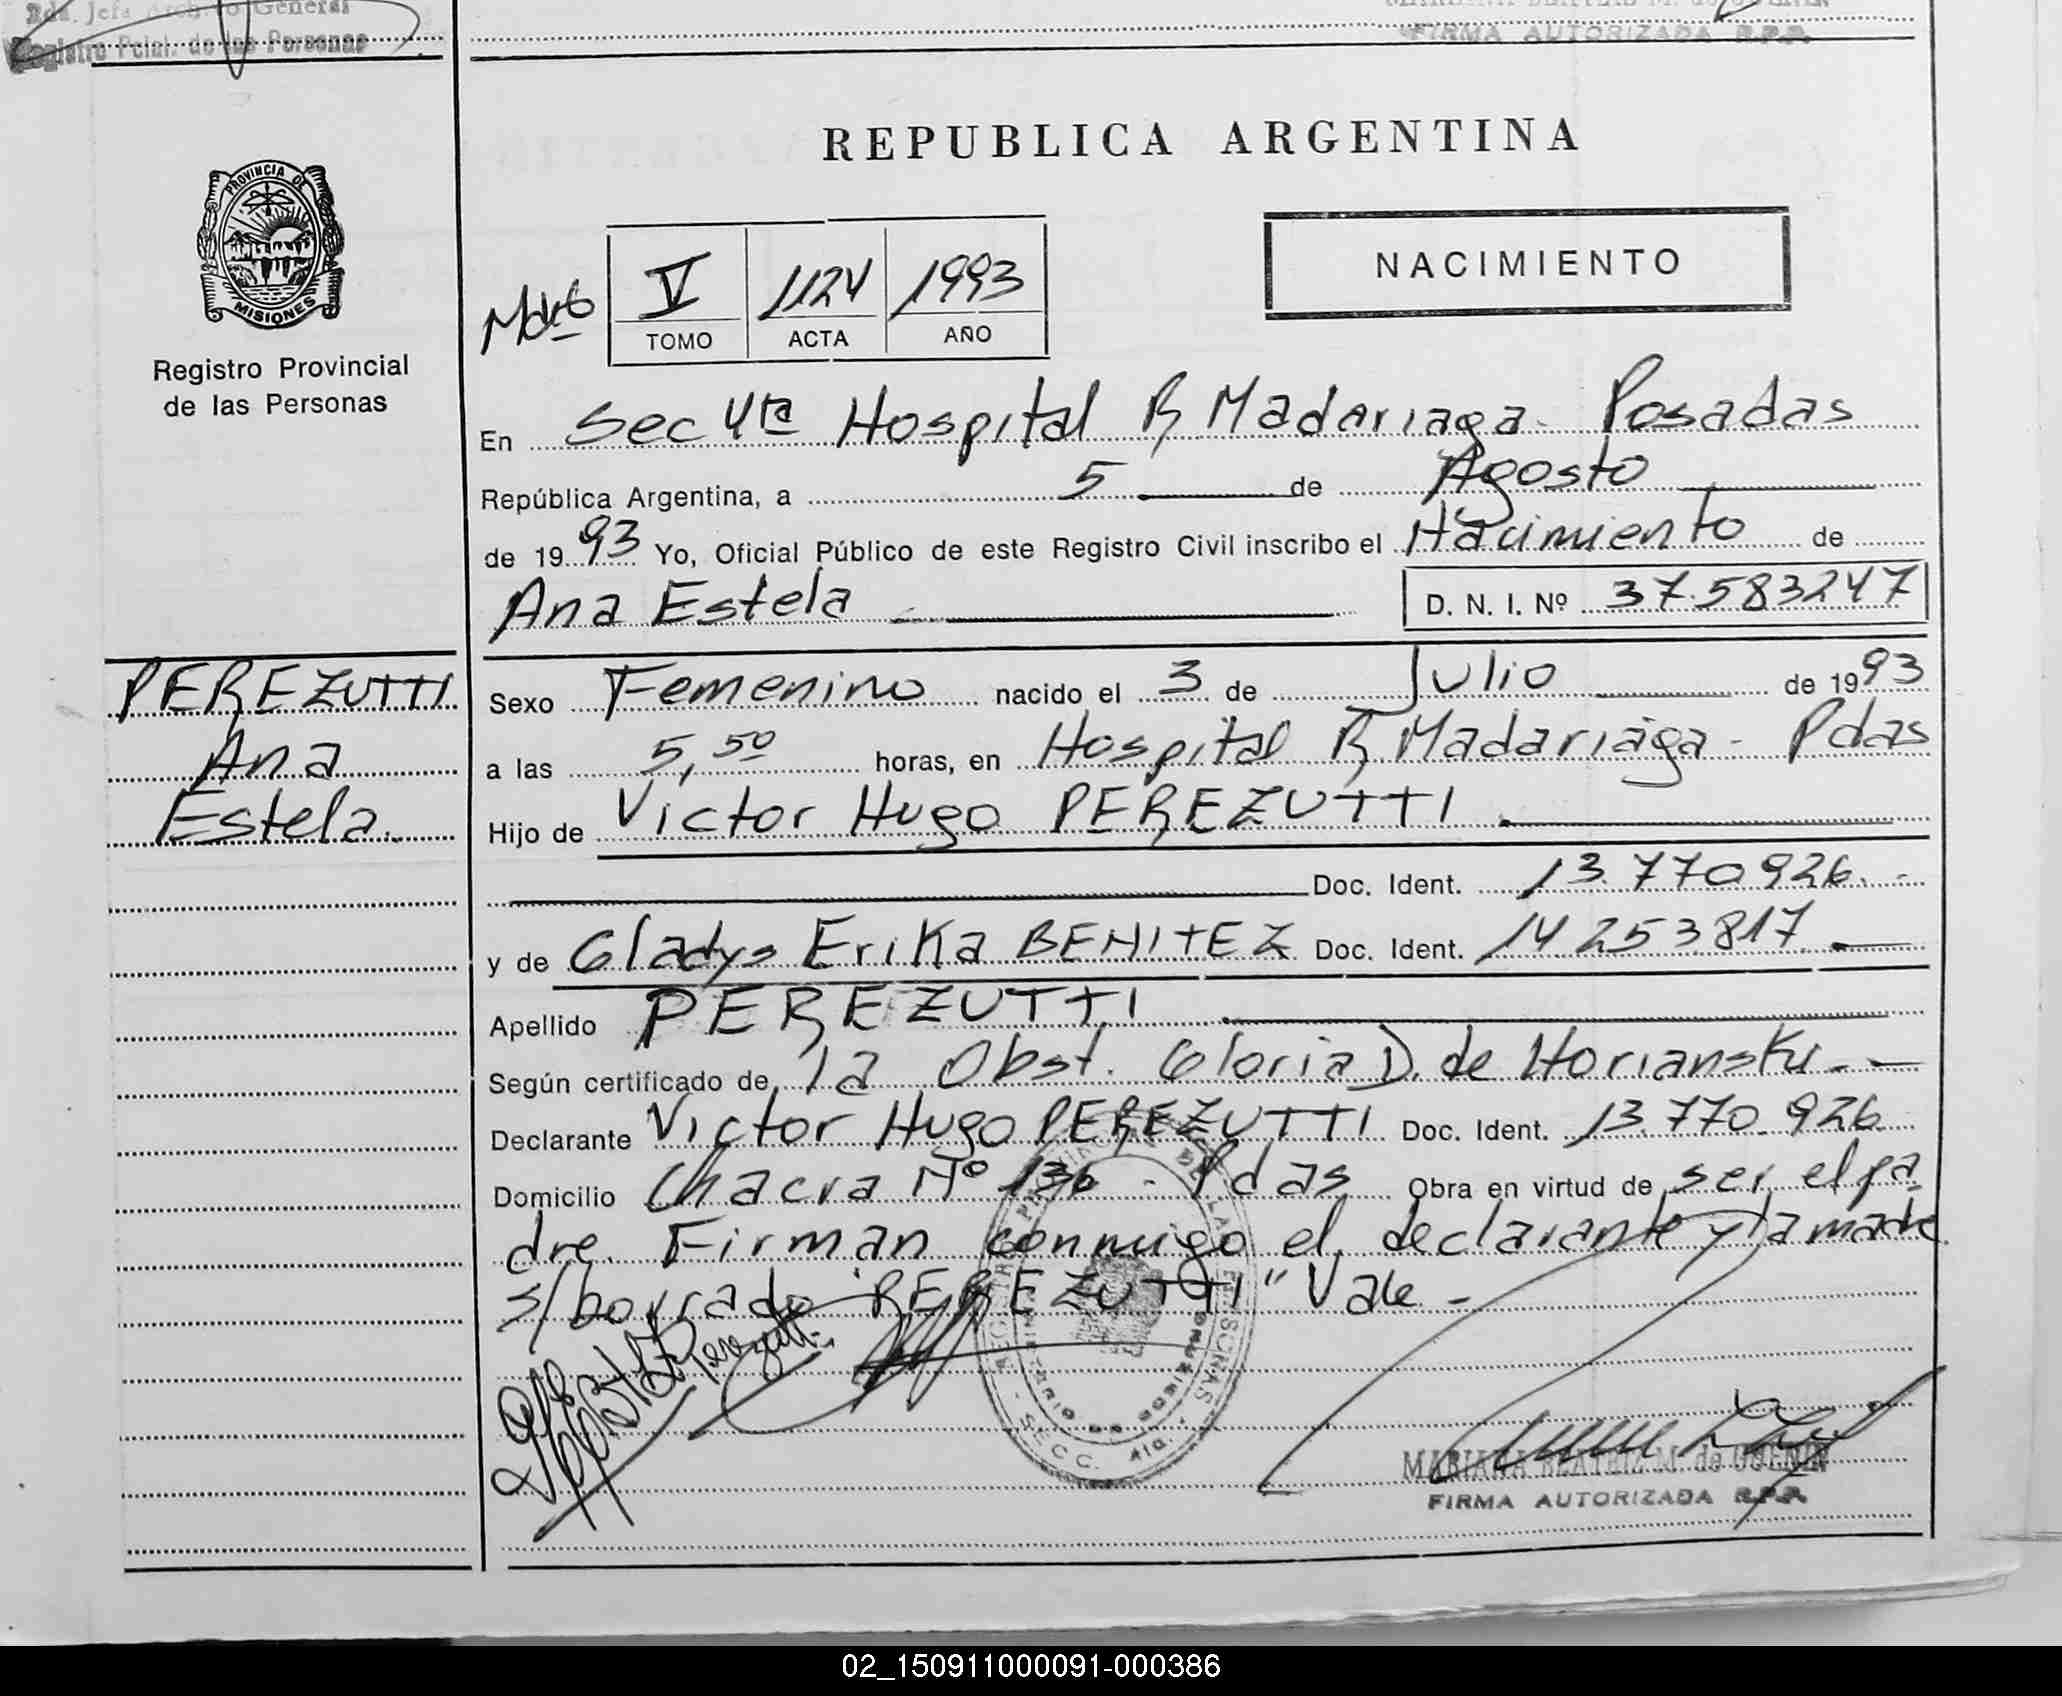 Bda. Jefa Archivo General
Registro Pcial. de las Personas
FIRMA AUTORIZADA R.P.P.
REPUBLICA ARGENTINA
PROVINCIA DE
MISIONES
Registro Provincial
de las Personas
V 1124 1993
TOMO ACTA AÑO
NACIMIENTO
En Sec 4ta Hospital R Madariaga - Posadas
República Argentina, a 5 de Agosto
de 1993 Yo, Oficial Público de este Registro Civil inscribo el Nacimiento de
Ana Estela D. N. I. Nº 37.583247
PEREZUTTI
Ana
Estela.
Sexo Femenino nacido el 3 de Julio de 1993
a las 5,50 horas, en Hospital R Madariaga - Pdas
Hijo de Victor Hugo PEREZUTTI
Doc. Ident. 13.770926.-
y de Gladys Erika BENITEZ Doc. Ident. 14253817
Apellido PEREZUTTI
Según certificado de la Obst. Gloria D. de Horiansky.-
Declarante Victor Hugo PEREZUTTI Doc. Ident. 13.770.926
Domicilio Chacra Nº 136 - Pdas Obra en virtud de ser el pa
dre. Firman conmigo el declarante y la madre.
s/borrado "PEREZUTTI" Vale -
MARIANA BEATRIZ M. de
FIRMA AUTORIZADA R.P.P.
02_150911000091-000386